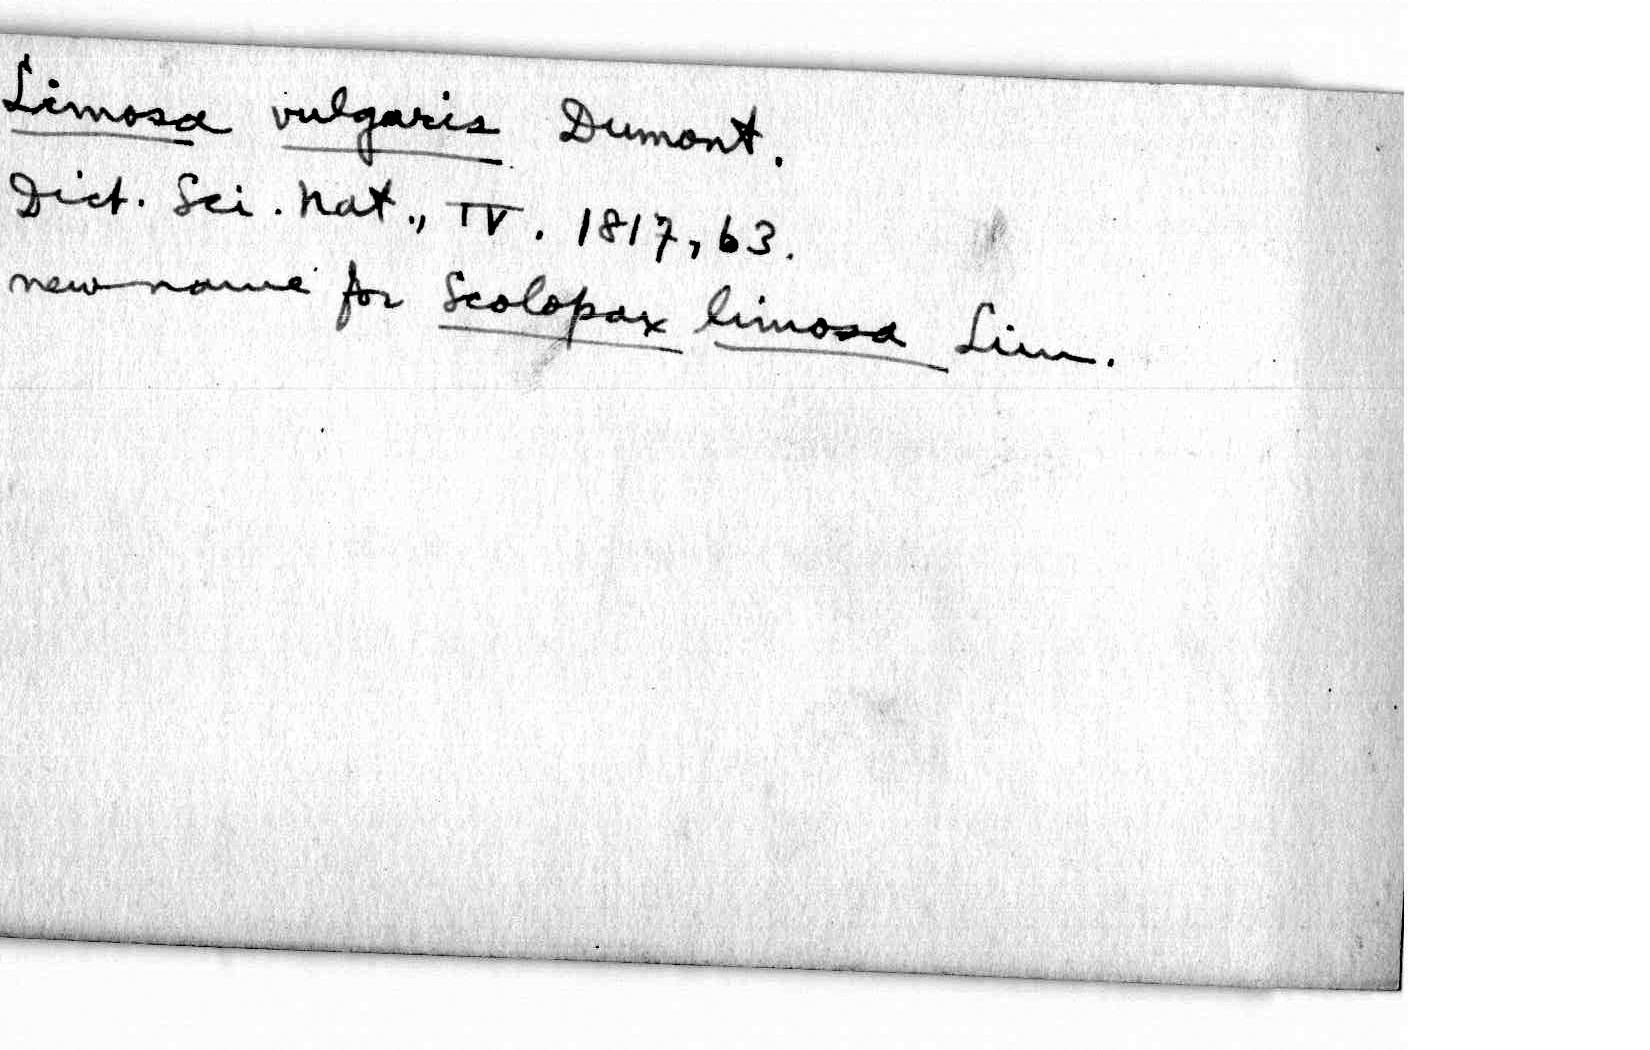 Limosa vulgaris Dumont.
Dict. Sci. Nat., IV. 1817, 63.
new name for Scolopax limosa Linn.